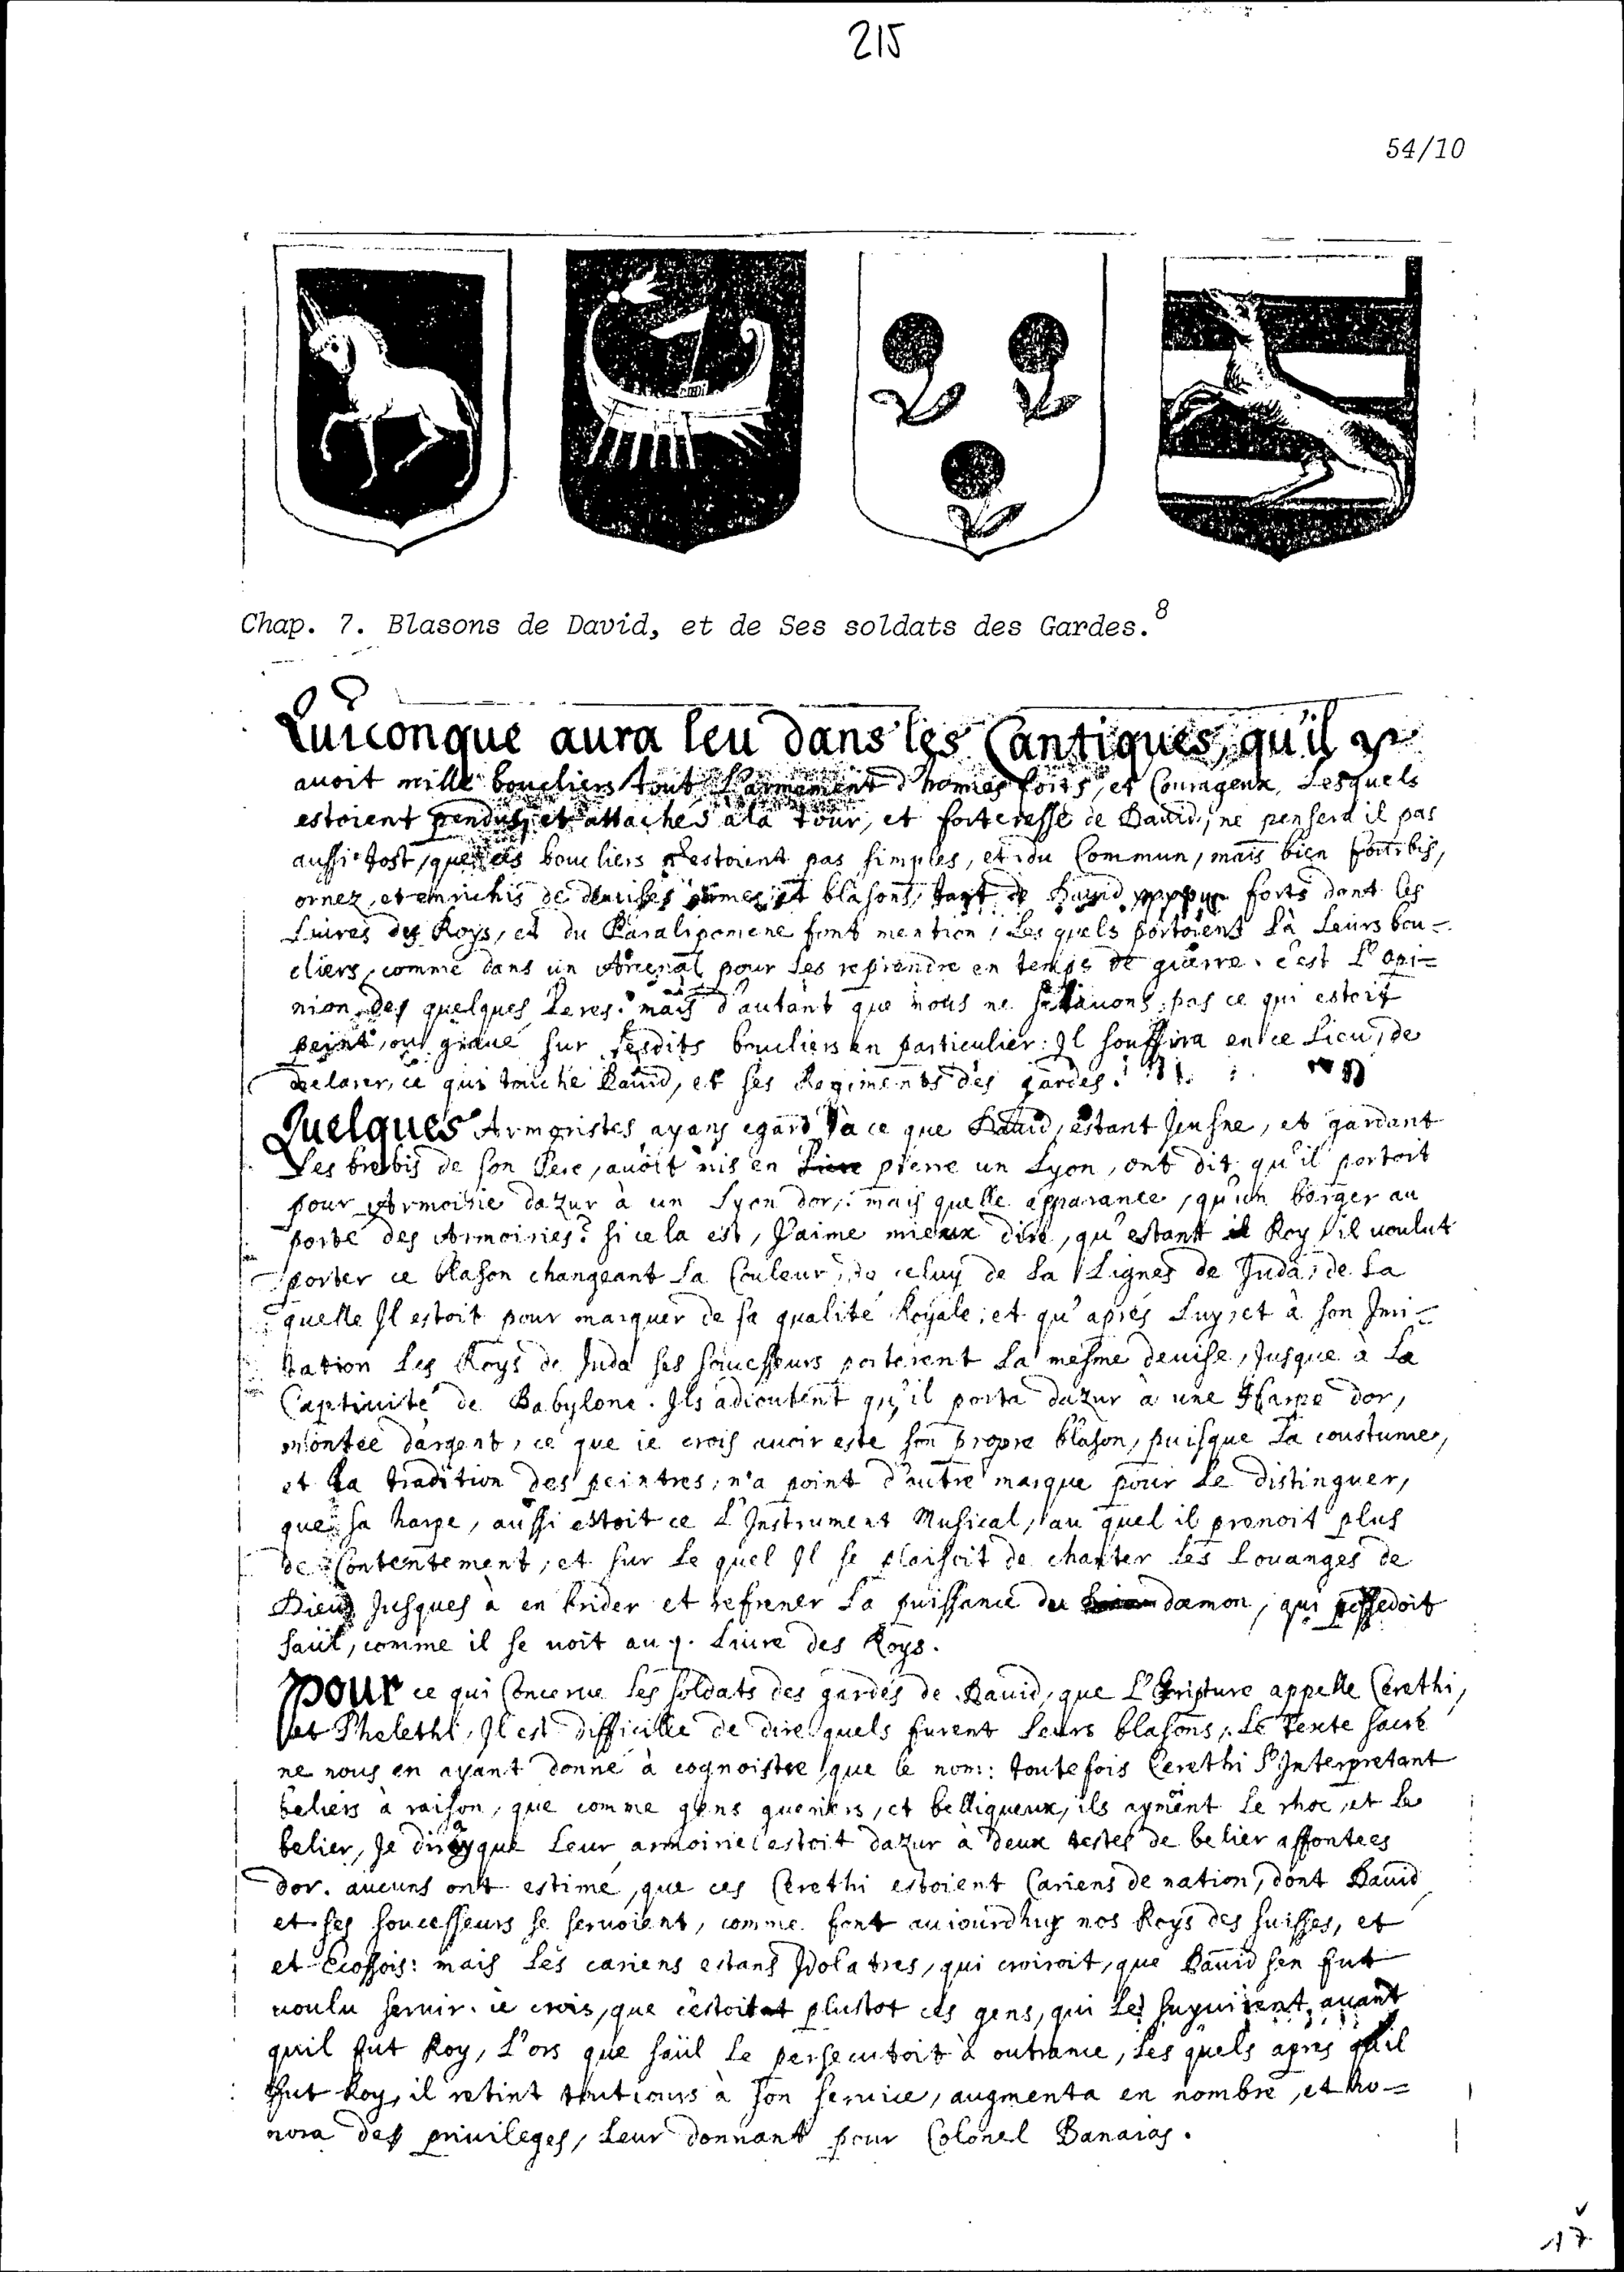 215
54/10
Chap. 7. Blasons de David, et de Ses soldats des Gardes.8
Quiconque aura leu dans les Cantiques, qu'il y
auoit mille boucliers tout l'armement d'homes forts, et Courageux, Lesquels
estoient pendus, et attachés à la tour, et forteresse de Dauid, ne pensera il pas
aussi tost, que ces boucliers n'estoient pas simples, et du Commun, mais bien fourbis,
ornez, et enrichis de deuises armes et blasons, tant de Dauid forts dont les
Liures des Roys, et du Paralipomene font mention, Les quels portoient Là Leurs bou-
cliers, comme dans un Arcenal pour Les reprendre en temps de guerre. c'est L'opi=
nion des quelques Peres. mais d'autant que nous ne sauons pas ce qui estoit
peint, ou graué sur lesdits boucliers en particulier: Il souffira en ce Lieu, de
declarer, ce qui touche Dauid, et ses Regiments des gardes.
Quelques Armoristes ayans egard à ce que Dauid, estant Jeusne, et gardant
Les brebis de son Pere, auoit mis en piece un Lyon, ont dit qu'il portoit
pour Armoirie dazur à un Lyon dor, mais quelle apparance, qu'un berger au
porté des Armoiries? si cela est, J'aime mieux dire, qu'estant Roy il uoulut
porter ce blason changeant La Couleur, de celuy de La Lignes de Juda, de La
quelle Il estoit pour marquer de sa qualité Royale, et qu'aprés Luy, et à son Jmi=
tation Les Roys de Juda ses soucesseurs porterent La mesme deuise, Jusque à La
Captiuité de Babylone. Ils adioutent qu'il porta dazur à une Harpe dor,
montée dargent, ce que ie crois auoir este son propre blason, puisque La coustume,
et La tradition des peintres, n'a point d'autre marque pour Le distinguer,
que sa harpe, aussi estoit ce L'Instrument Musical, au quel il prenoit plus
de Contentement, et sur Le quel Il se plaisoit de chanter Les Louanges de
Dieu, Jusques à en brider et refrener La puissance du dæmon, qui possedoit
saül, comme il se uoit au 1. Liure des Roys.
Pour ce qui Concerne Les soldats des gardes de Dauid, que L'Escripture appelle Cerethi,
et Phelethi, Il est difficille de dire quels furent Leurs blasons, Le texte sacré
ne nous en ayant donné à cognoistre que le nom: toutefois Cerethi s'Interpretant
beliers à raison, que comme gens gueriers, et belliqueux, ils ayment Le choc, et Le
belier, Je diray que Leur armoirie estoit dazur à deux testes de belier affontees
dor. aucuns ont estimé, que ces Cerethi estoient Cariens de nation, dont Dauid
et ses soucesseurs se seruoient, comme font auiourdhuy nos Roys des suisses, et
et Ecossois: mais Les cariens estans Idolatres, qui croiroit, que Dauid sen fut
uoulu seruir. ie crois, que c'estoit plustot ces gens, qui Le suyuirent, auant
quil fut Roy, L'ors que saül Le persecutoit à outrance, Les quels apres quil
fut Roy, il retint toutiours à son seruice, augmenta en nombre, et ho=
nora des priuileges, Leur donnant pour Colonel Banaias.
17